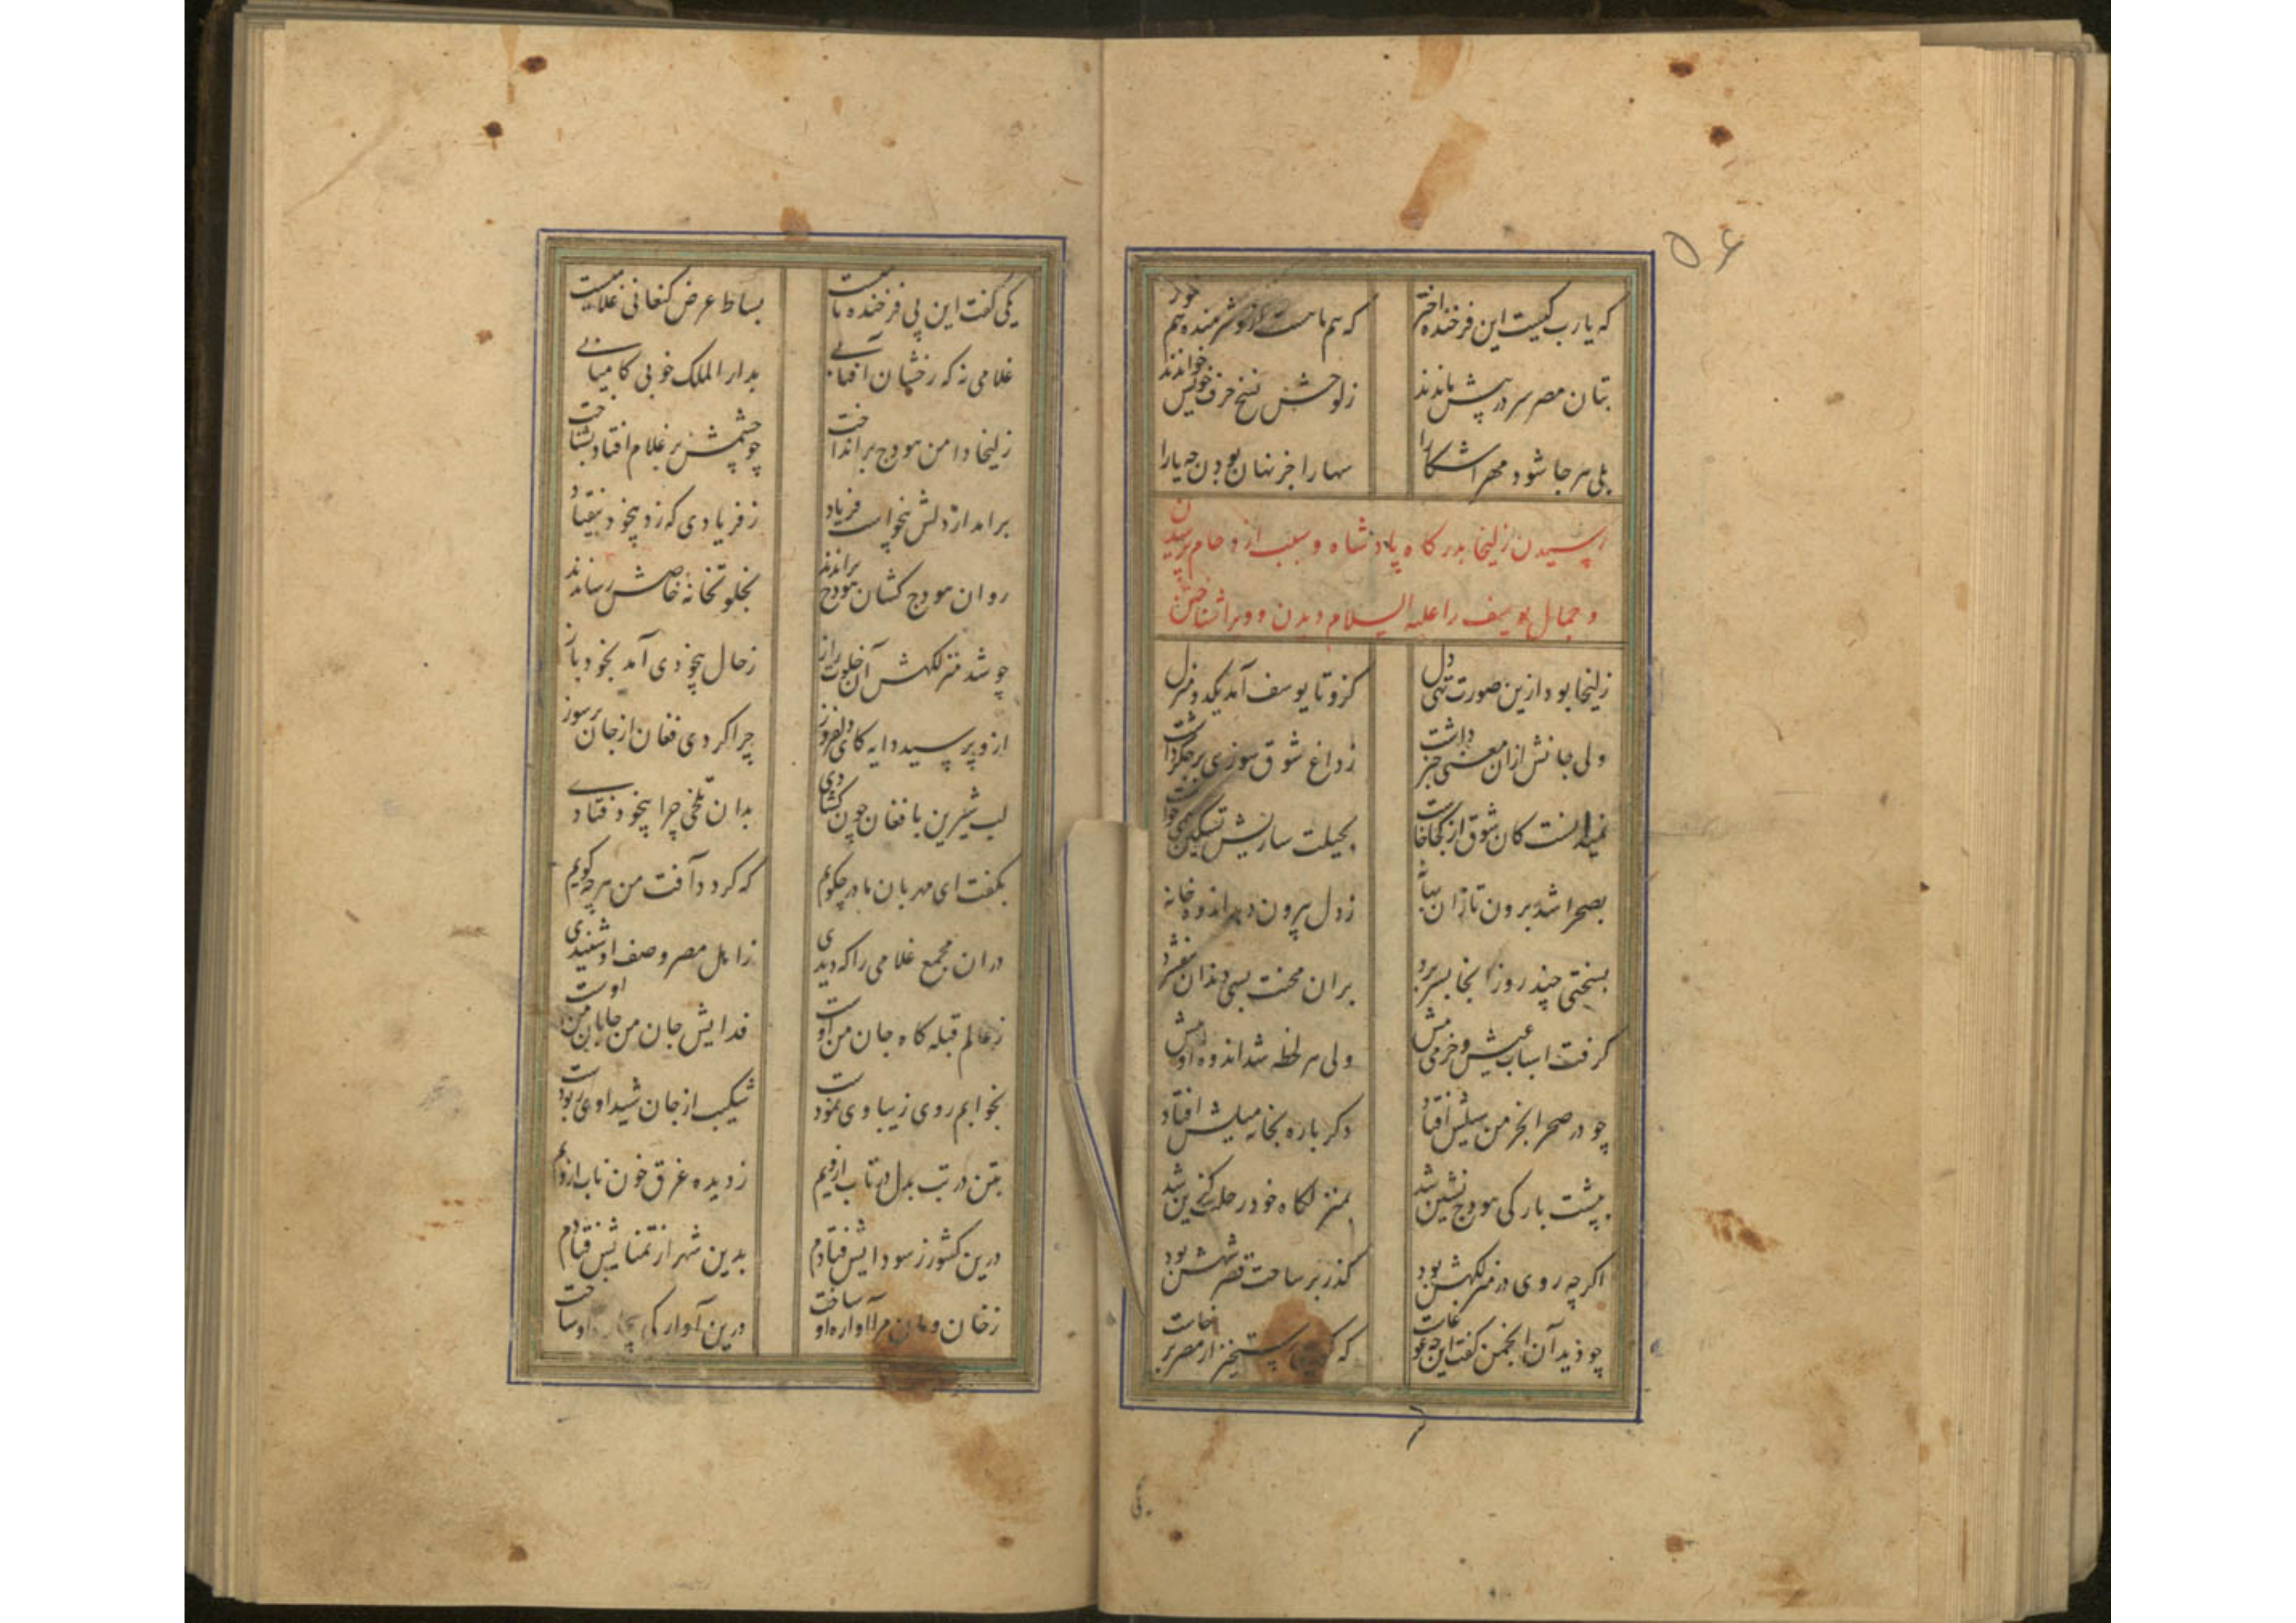 ۵۶
که یارب کیست این فرخنده اختر که هم ماهست ازو شرمنده هم خور
بتان مصر سر در پیش ماندند ز لوحش نسخ حرف خویش خواندند
بلی هر جا شود مهر اشکارا سها را جز نهان بودن چه یارا
رسیدن زلیخا بدرگاه پادشاه و سبب ازدحام پرسیدن
و جمال یوسف را علیه السلام دیدن و ویرا شناختن
زلیخا بود ازین صورت تهی دل کزو تا یوسف آمد یکدو منزل
ولی جانش ازان معنی خبر داشت ز داغ شوق سوزی بر جگر داشت
نمیدانست کان شوق از کجا خاست بحیلت سازیش تسکین همی خواست
بصحرا شد برون تا زان بهانه ز دل بیرون دهد اندوه خانه
بسختی چند روز آنجا بسر برد بران محنت بسی دندان بیفشرد
گرفت اسباب عیش و خرمی پیش ولی هر لحظه شد اندوه او بیش
چو در صحرا بخرمن سیلش افتاد دگر باره بخانه میلش افتاد
بپشت بارگی هودج نشین شد بمنزلگاه خود رحلت گزین شد
اگرچه روی در منزلگهش بود گذر بر ساحت قصر شهش بود
چو دید آن انجمن گفت این چه غوغاست که گویی رستخیز از مصر برخاست
یکی گفت این پی فرخنده نامیست بساط عرض کنعانی غلامیست
غلامی نه که رخشان آفتابی بدار الملک خوبی کامیابی
زلیخا دامن هودج برانداخت چو چشمش بر غلام افتاد بشناخت
برامد از دلش بیخواست فریاد ز فریادی که زد بیخود بیفتاد
روان هودج کشان هودج براندند بخلوتخانه خاصش رساندند
چو شد منزلگهش آن خلوت راز ز حال بیخودی آمد بخود باز
ازو پرسید دایه کای دلفروز چرا کردی فغان از جان پرسوز
لب شیرین بافغان چون گشادی بدان تلخی چرا بیخود فتادی
بگفت ای مهربان مادر چگویم که گردد آفت من هرچه گویم
دران مجمع غلامی را که دیدی ز اهل مصر وصف او شنیدی
ز عالم قبله گاه جان من اوست فدایش جان من جانان من اوست
بخوابم روی زیبا وی نمودست شکیب از جان شیدا وی ربودست
بتن در تب بدل در تاب ازویم ز دیده غرق خون ناب ازویم
درین کشور ز سودایش فتادم بدین شهر از تمنایش فتادم
ز خان و مان مرا آواره او ساخت درین آوارگی بیچاره او ساخت